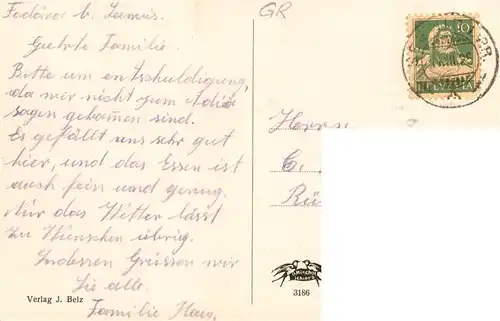 Fadära b. Seewis.
Geehrte Familie.
Bitte um entschuldigung,
da wir nicht zum Adia
sagen gekommen sind.
Es gefällt uns sehr gut
hier, und das Essen ist
auch fein und genug.
Nur das Wetter lässt
zu Wünschen übrig.
Indessen Grüssen wir
Sie alle.
Familie Haus,
Verlag J. Belz
GR
10
HELVETIA
Herrn
C.
Rü
3186